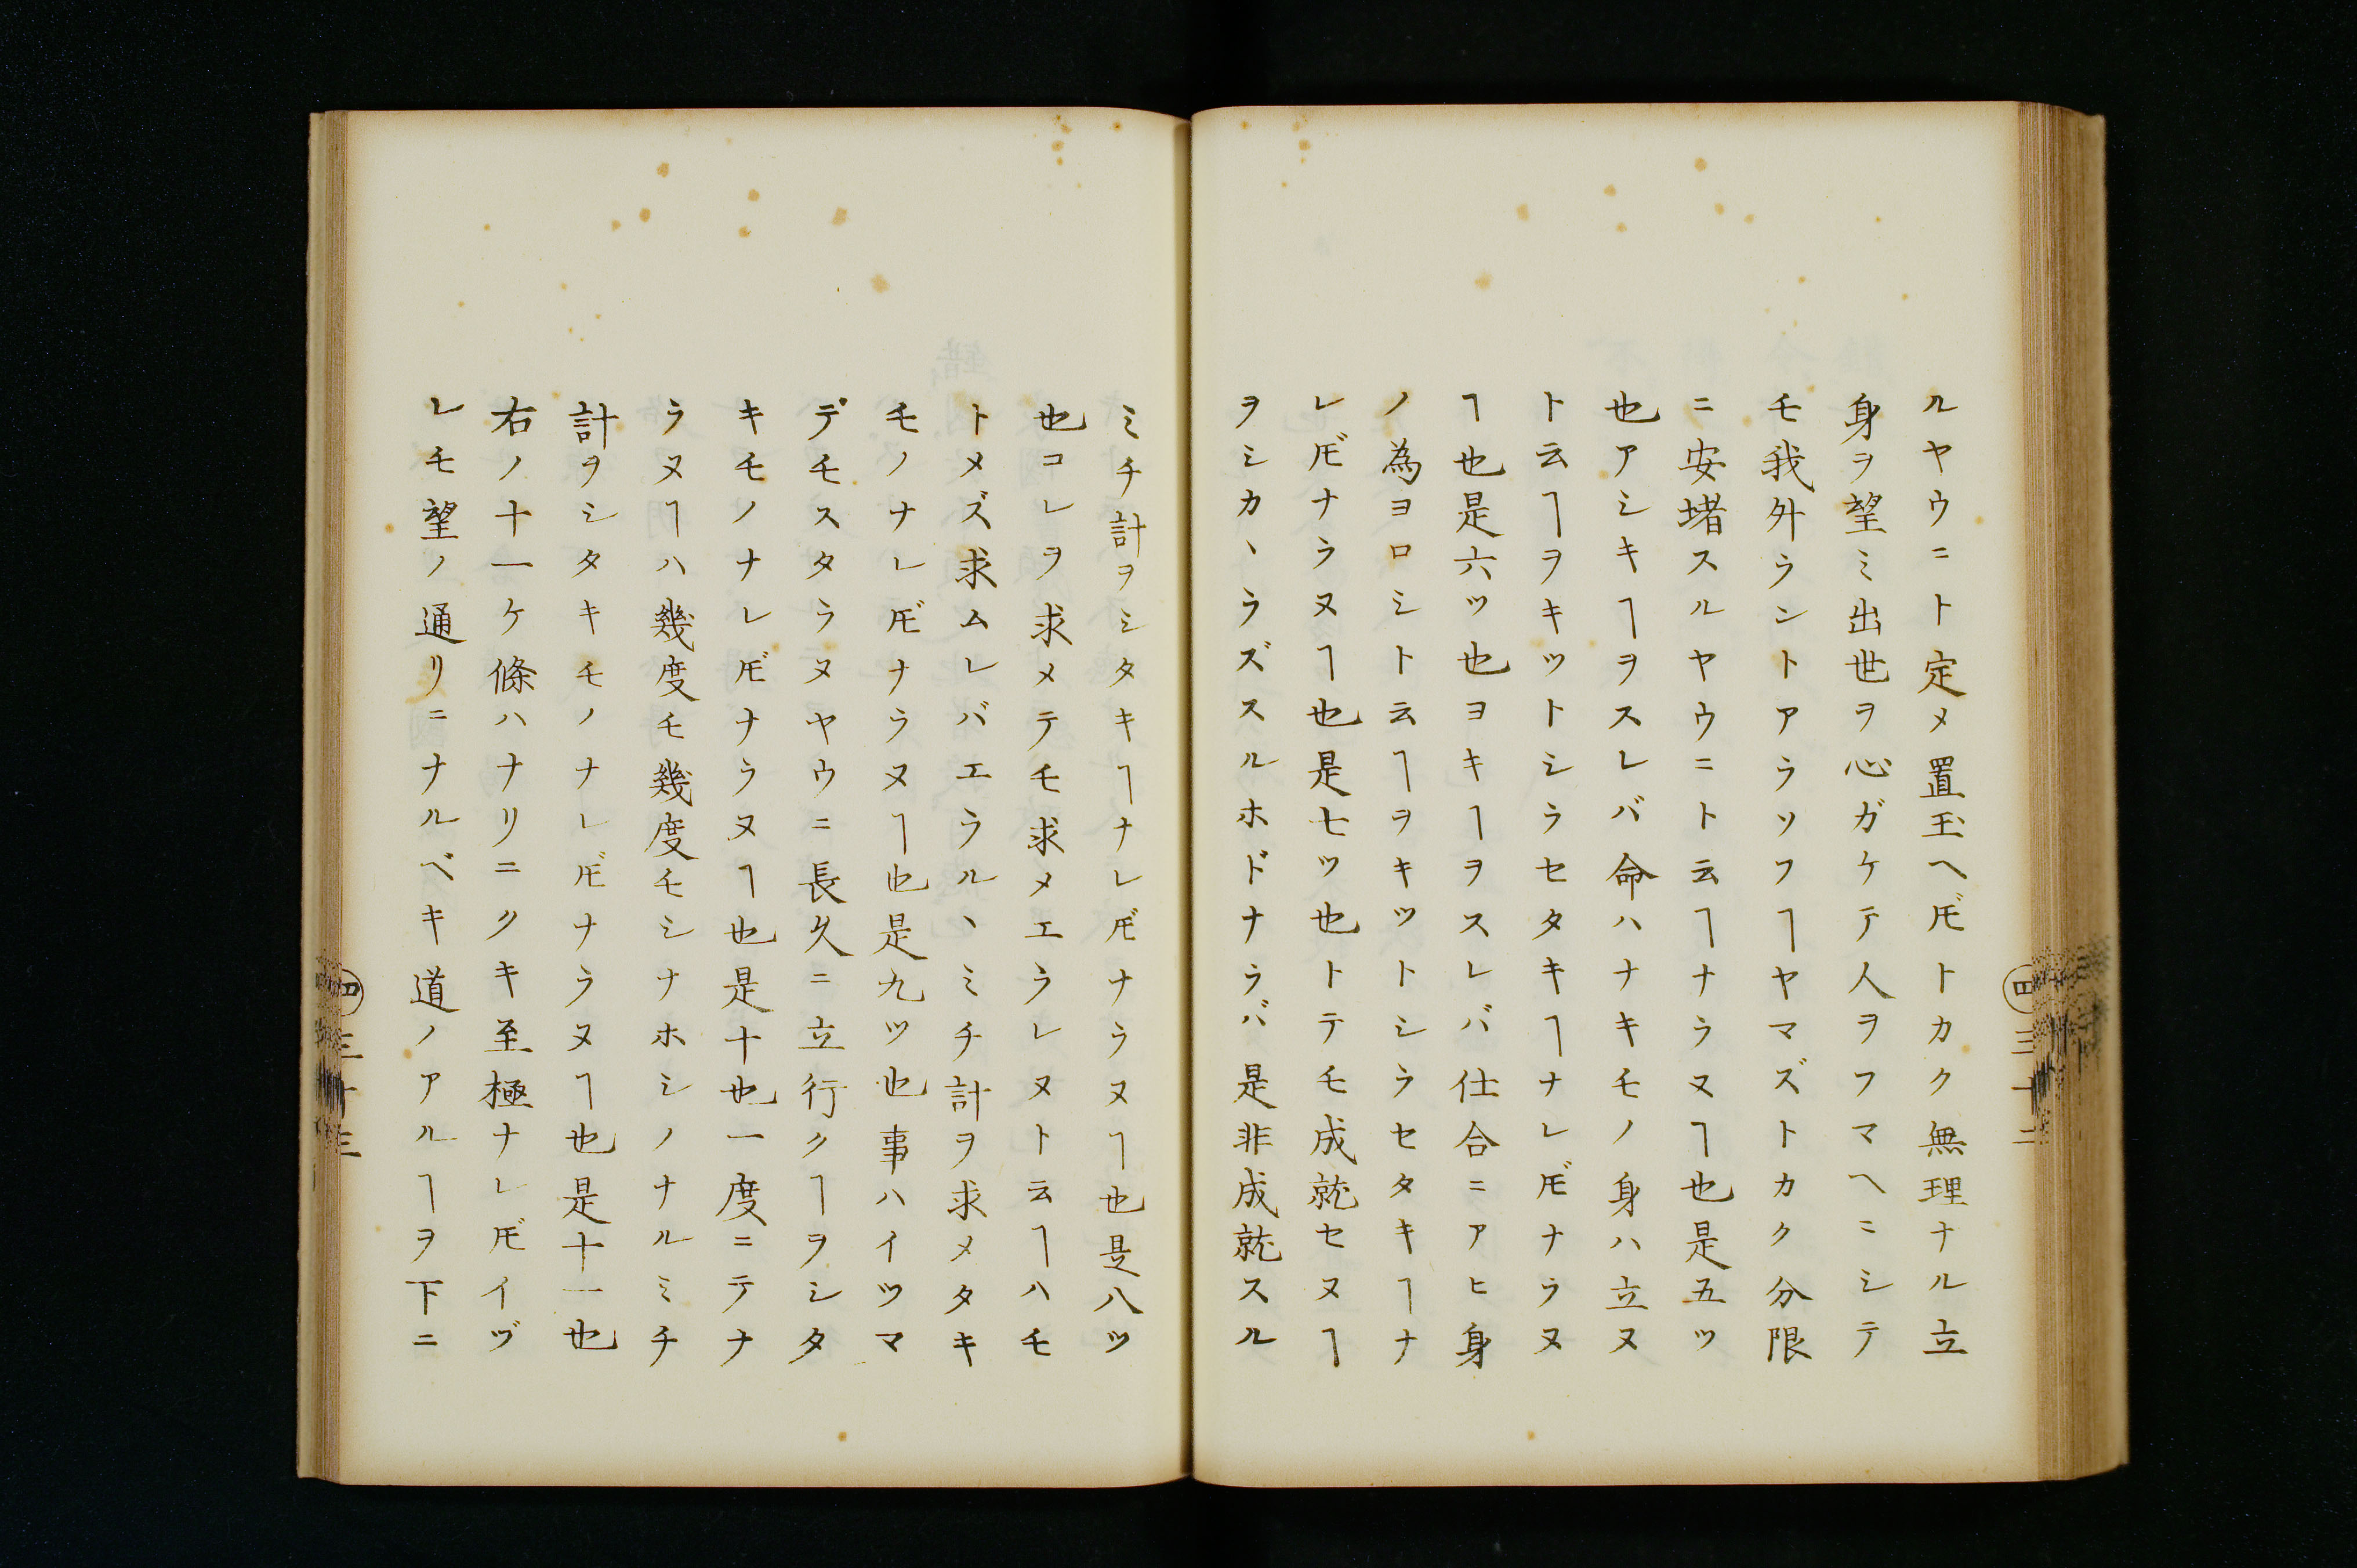 ルヤウニト定メ置玉ヘ𪜈トカク無理ナル立
身ヲ望ミ出世ヲ心ガケテ人ヲフマヘニシテ
モ我外ラントアラソフヿヤマズトカク分限
ニ安堵スルヤウニト云ヿナラヌヿ也是五ツ
也アシキヿヲスレバ命ハナキモノ身ハ立ヌ
ト云ヿヲキツトシラセタキヿナレ𪜈ナラヌ
ヿ也是六ツ也ヨキヿヲスレバ仕合ニアヒ身
ノ為ヨロシト云ヿヲキツトシラセタキヿナ
レ𪜈ナラヌヿ也是七ツ也トテモ成就セヌヿ
ヲシカヽラズスルホドナラバ是非成就スル
㊃三十二
ミチ計ヲシタキヿナレ𪜈ナラヌヿ也是八ツ
也コレヲ求メテモ求メエラレヌト云ヿハモ
トメズ求ムレバエラルヽミチ計ヲ求メタキ
モノナレ𪜈ナラヌヿ也是九ツ也事ハイツマ
デモスタラヌヤウニ長久ニ立行クヿヲシタ
キモノナレ𪜈ナラヌヿ也是十也一度ニテナ
ラヌヿハ幾度モ幾度モシナホシノナルミチ
計ヲシタキモノナレ𪜈ナラヌヿ也是十一也
右ノ十一ケ條ハナリニクキ至極ナレ𪜈イヅ
レモ望ノ通リニナルベキ道ノアルヿヲ下ニ
㊃三十三